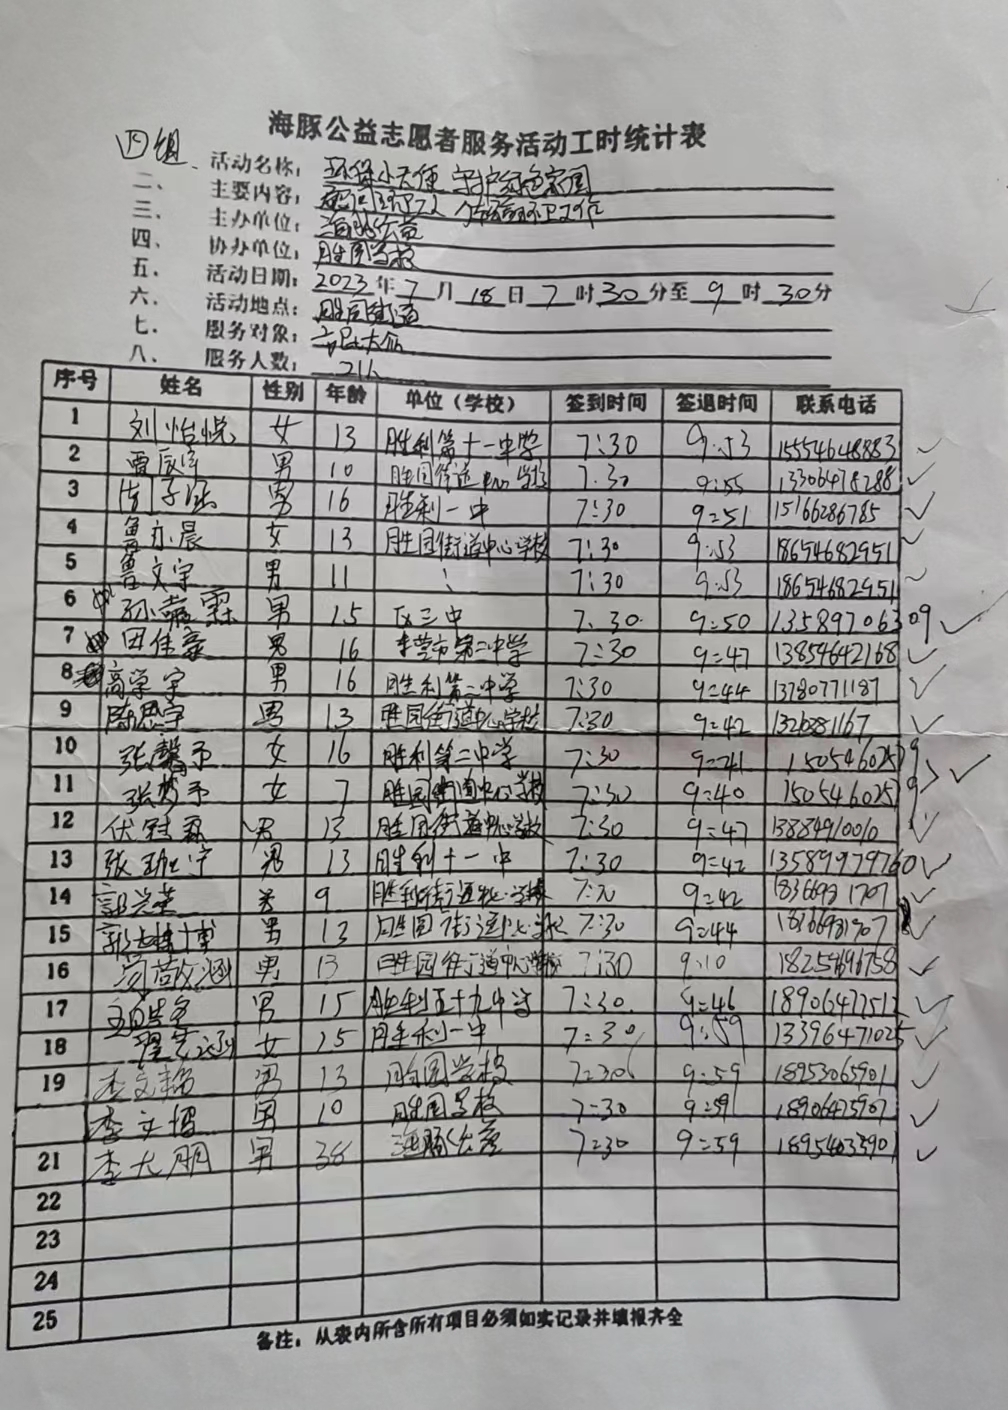 海豚公益志愿者服务活动工时统计表
四组
活动名称：环保小天使 守护绿色家园
二、 主要内容： 体验环卫工作
三、 主办单位：海豚公益
四、 协办单位：胜园学校
五、 活动日期：2023年7月18日7时30分至9时30分
六、 活动地点：胜园街道
七、 服务对象：市民大众
八、 服务人数：21人
序号 姓名 性别 年龄 单位（学校） 签到时间 签退时间 联系电话
1 刘怡悦 女 13 胜利第十一中学 7:30 9:53 15554648883
2 男 10 胜园街道中心学校 7:30 9:55 13306478288
3 男 16 胜利一中 7:30 9:51 15166286785
4 鲁亦晨 女 13 胜园街道中心学校 7:30 9:53 18654682951
5 鲁文宇 男 11 7:30 9:53 18654682951
6 孙嘉霖 男 15 仅三中 7:30 9:50 13589706309
7 田佳豪 男 16 东营市第二中学 7:30 9:47 13854642168
8 高学宇 男 16 胜利第二中学 7:30 9:44 13780771187
9 陈思宇 男 13 胜园街道中心学校 7:30 9:42 1326281167
10 张馨予 女 16 胜利第二中学 7:30 9:41
11 张梦予 女 7 胜园街道中心学校 7:30 9:40
12 男 13 胜园街道中心学校 7:30 9:47 13884910010
13 男 13 胜利十一中 7:30 9:42 13589979760
14 郭兴 男 9 7:30 9:42 18366981707
15 郭 博 男 13 胜园街道中心学校 7:30 9:44
16 涵 男 13 胜园街道中心学校 7:30 9:10 18254696758
17 男 15 胜利五十九中学 7:30 9:46 18906477512
18 涵 女 15 胜利一中 7:30 9:59 13396471025
19 李文韬 男 13 胜园学校 7:30 9:59 18953065901
李文 男 10 胜园学校 7:30 9:59 18906475907
21 李大朋 男 38 海豚公益 7:30 9:59 18954635901
22
23
24
25
备注：从表内所含所有项目必须如实记录并填报齐全